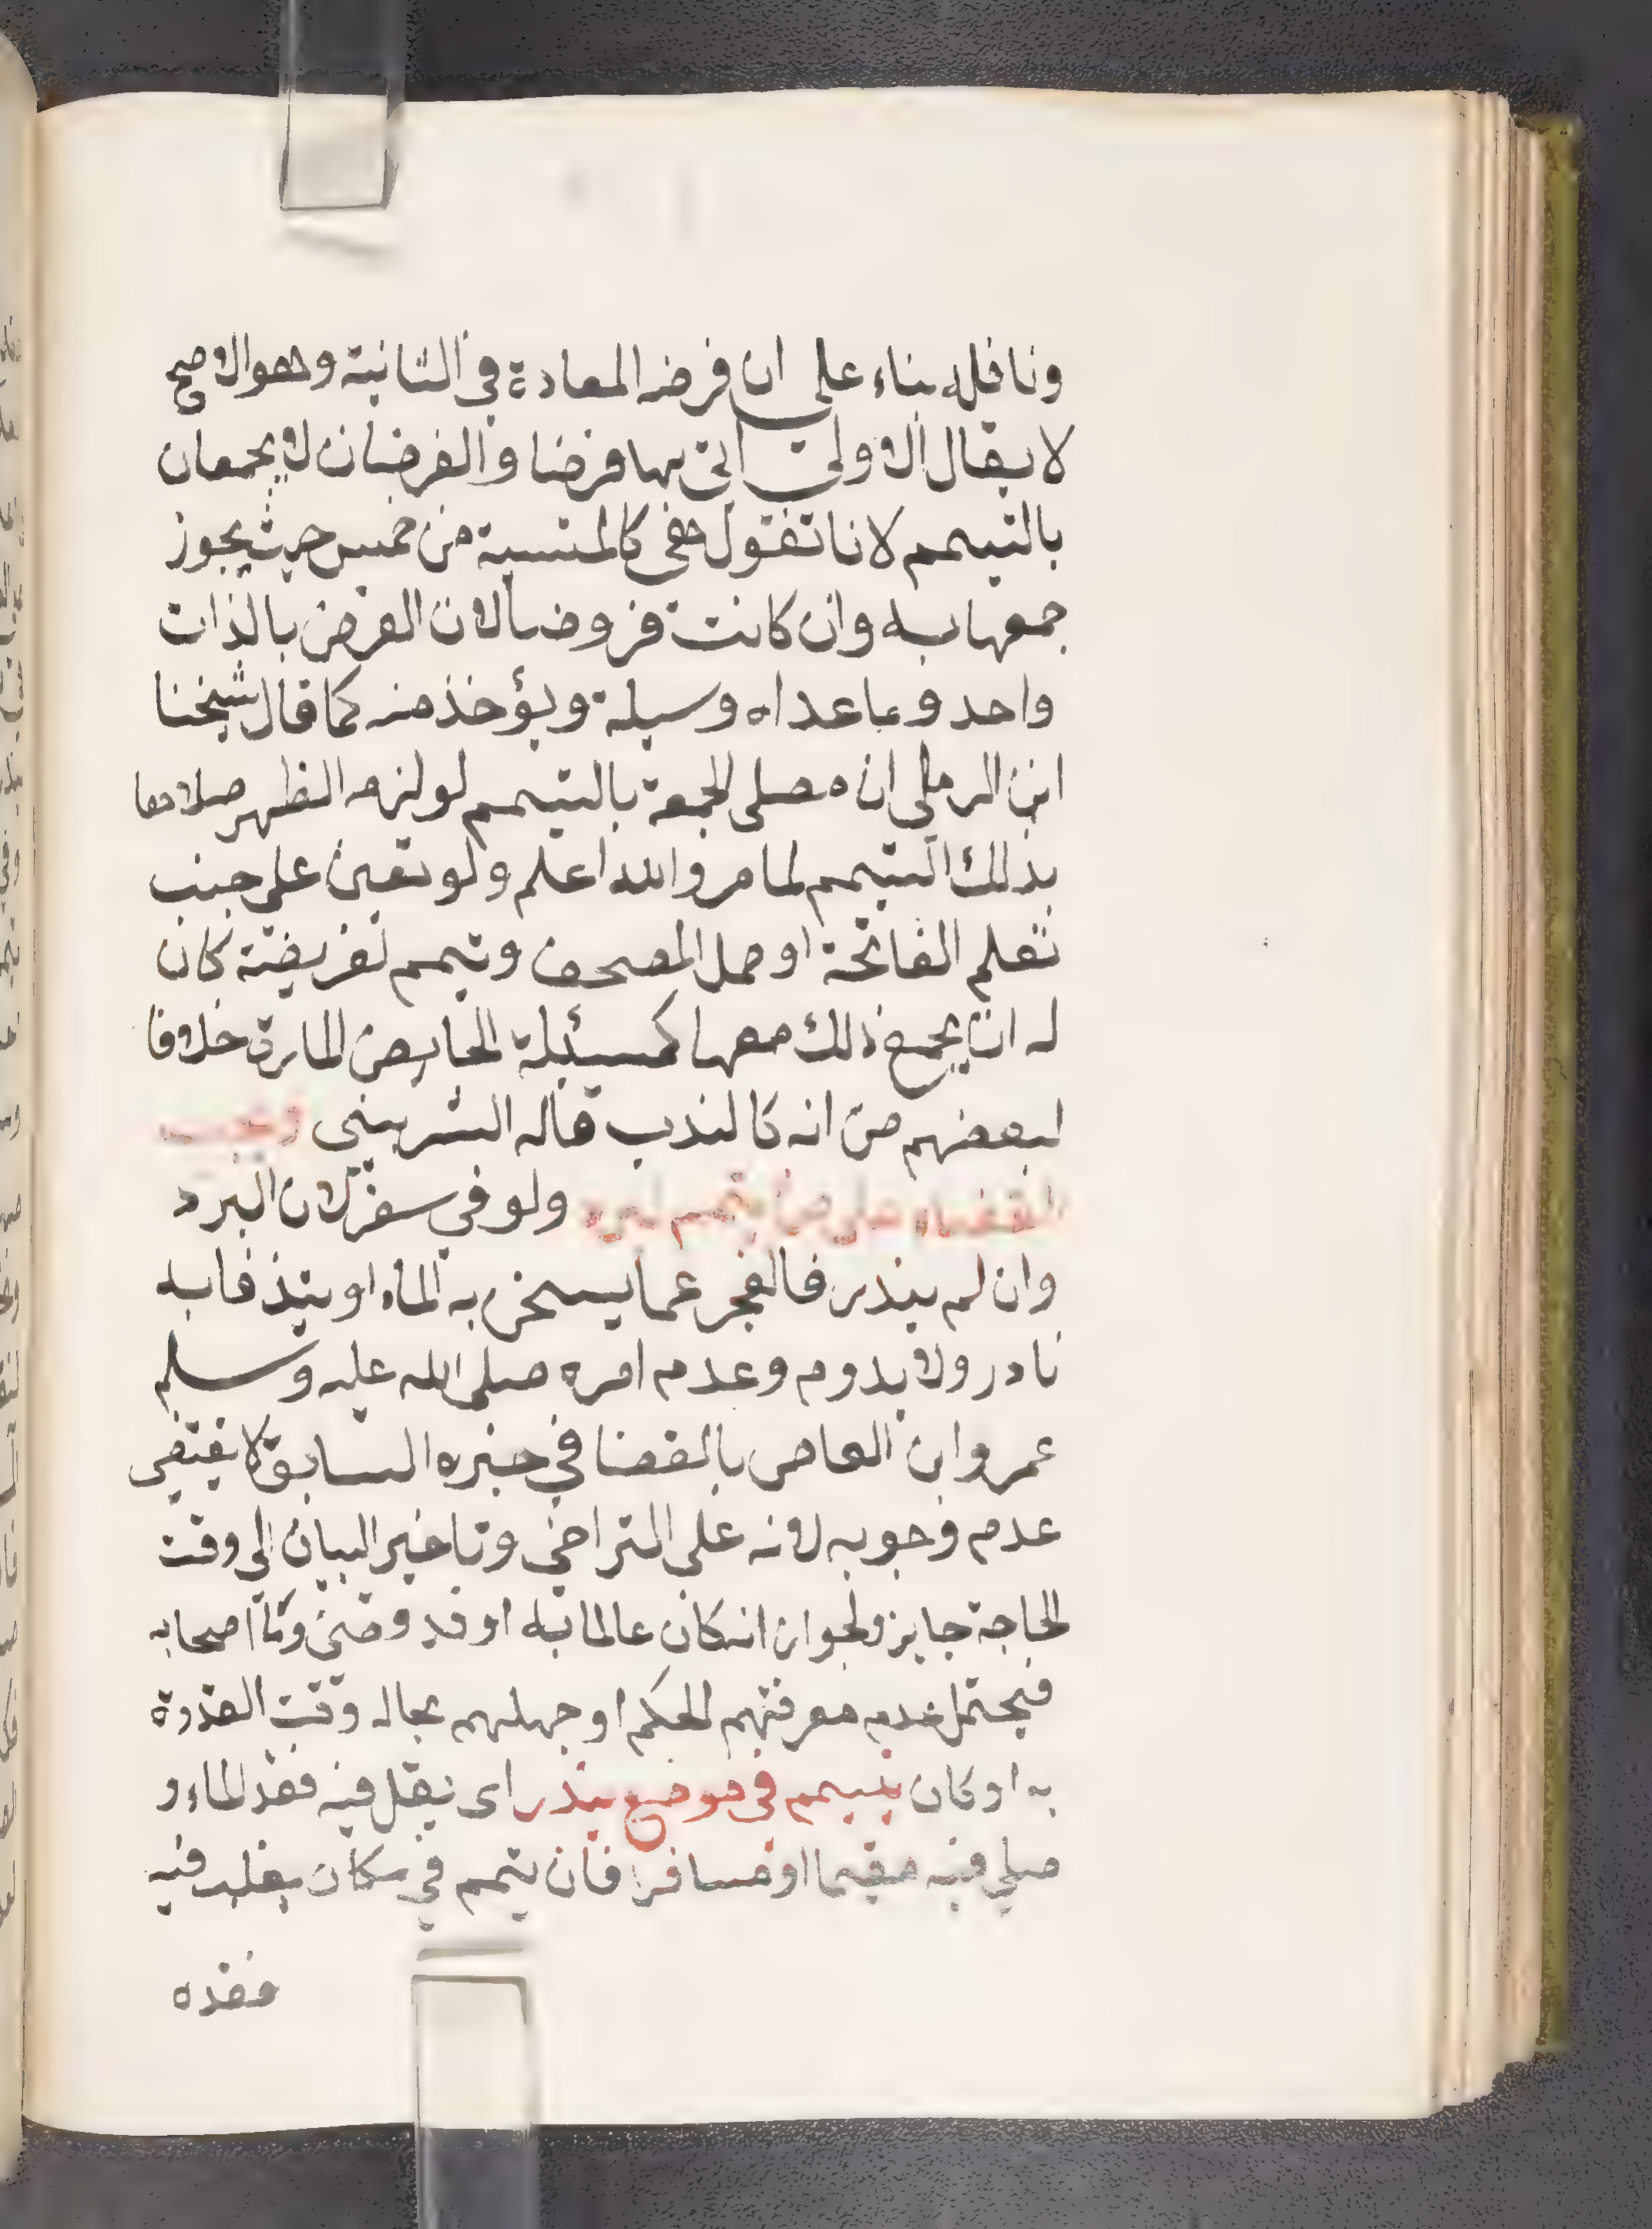 ونافله بناء على ان فرضه المعادة في الثانية وهو الاصح
لا يقال الاولى اتى بها فرضا والفرضان لا يجمعان
بالتيمم لانا نقول هي كالمنسية من خمس حيث يجوز
جمعها به وان كانت فروضا لان الفرض بالذات
واحد وما عداه وسيلة ويؤخذ منه كما قال شيخنا
ابن الرملي ان مصلى الجمعة بالتيمم لو لزمه الظهر صلاها
بذلك التيمم لما مر والله اعلم ولو تعين على جنب
تعلم الفاتحة او حمل المصحف وتيمم لفريضة كان
له ان يجمع ذلك معها كمسئلة الحايض المارة خلافا
لبعضهم من انه كالندب قاله الشربيني ويجب
القضاء على من يتمم لبرد ولو في سفر لان البرد
وان لم يندر فالعجز عما يسخن به الماء او يتدفا به
نادر ولا يدوم وعدم امره صلى الله عليه وسلم
عمرو ابن العاص بالقضا في خبره السابق لا يقتضى
عدم وجوبه لانه على التراخي وتاخير البيان الى وقت
الحاجة جايز ولجواز انه كان عالما به او قد وقضى واما اصحابه
فيحتمل عدم معرفتهم الحكم او جهلهم بحاله وقت القدوة
به او كان يتيمم في موضع يندر اى يقل فيه فقد الماء و
صلى فيه مقيما او مسافرا فان يتمم في مكان يغلب فيه
فقده